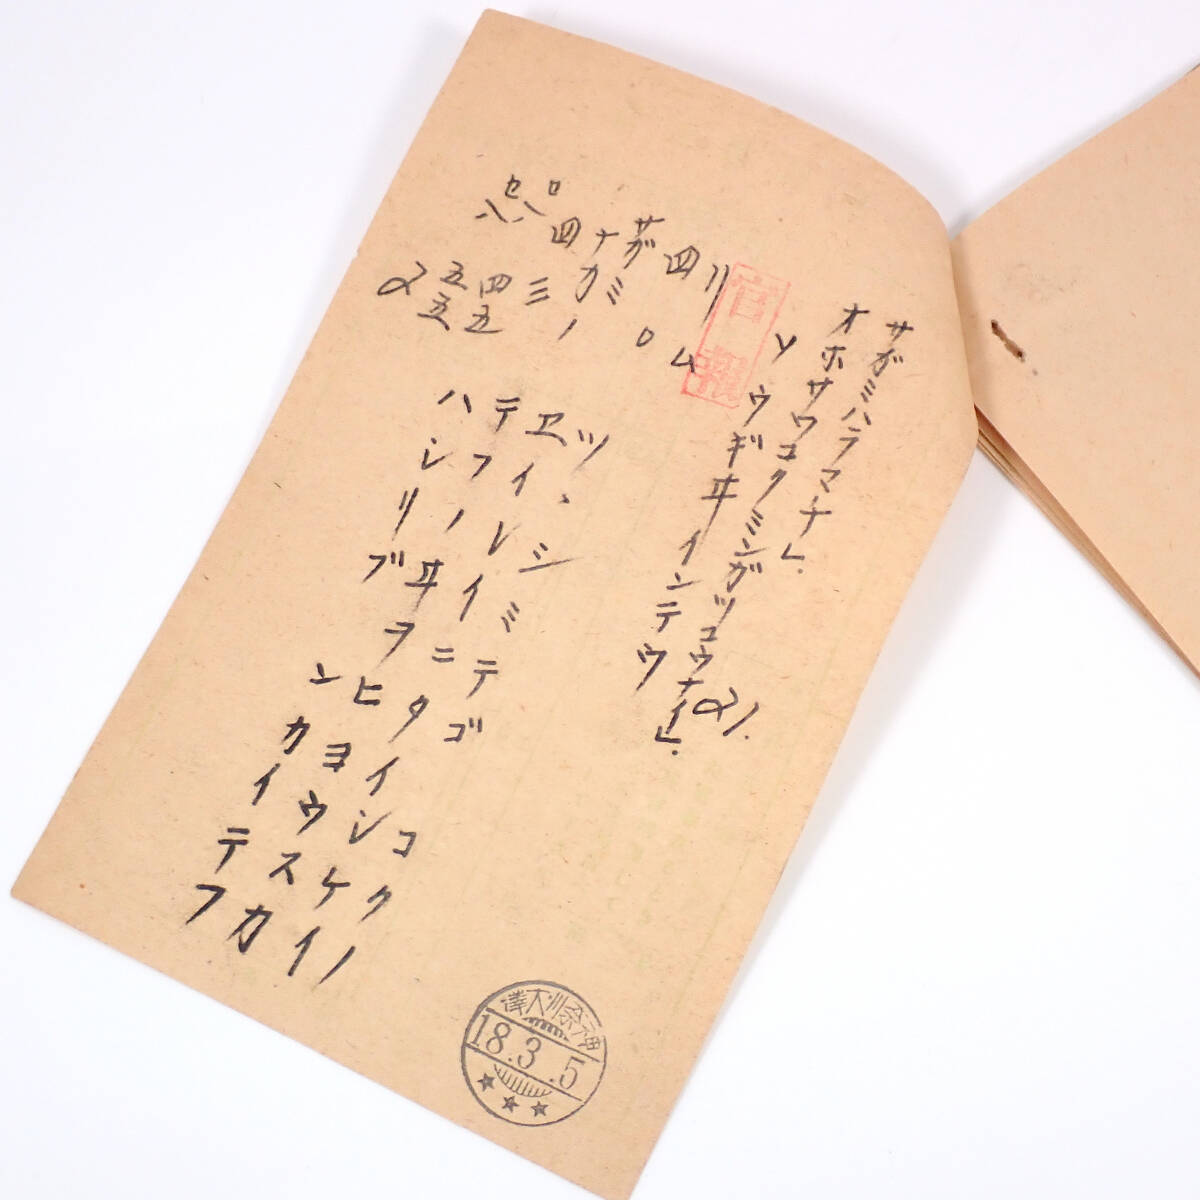 サガミハラマチ」.
オホサワコクミンガツコウナイ
ソウギヰインテウ」.
官報
ツヽシミテゴコクノ
ヱイレイニタイシケイ
テフノヰヲヒヨウスカ
ハシリブンカイテフ
神奈川大澤
18.3.5